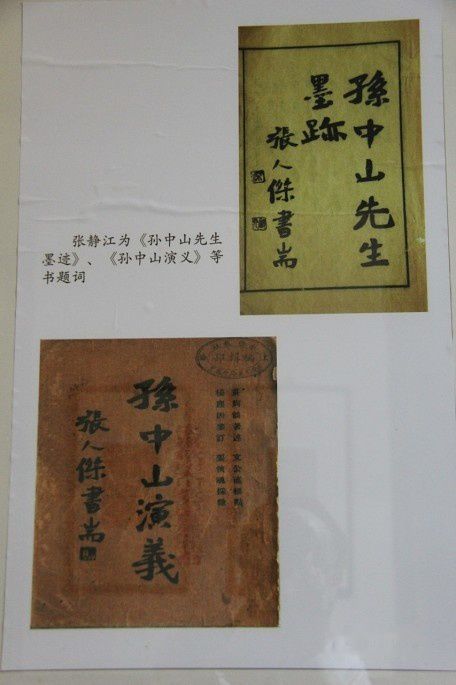 孫中山先生
墨跡
張人傑書耑
张静江为《孙中山先生
墨迹》、《孙中山演义》等
书题词
孫中山演義
張人傑書耑